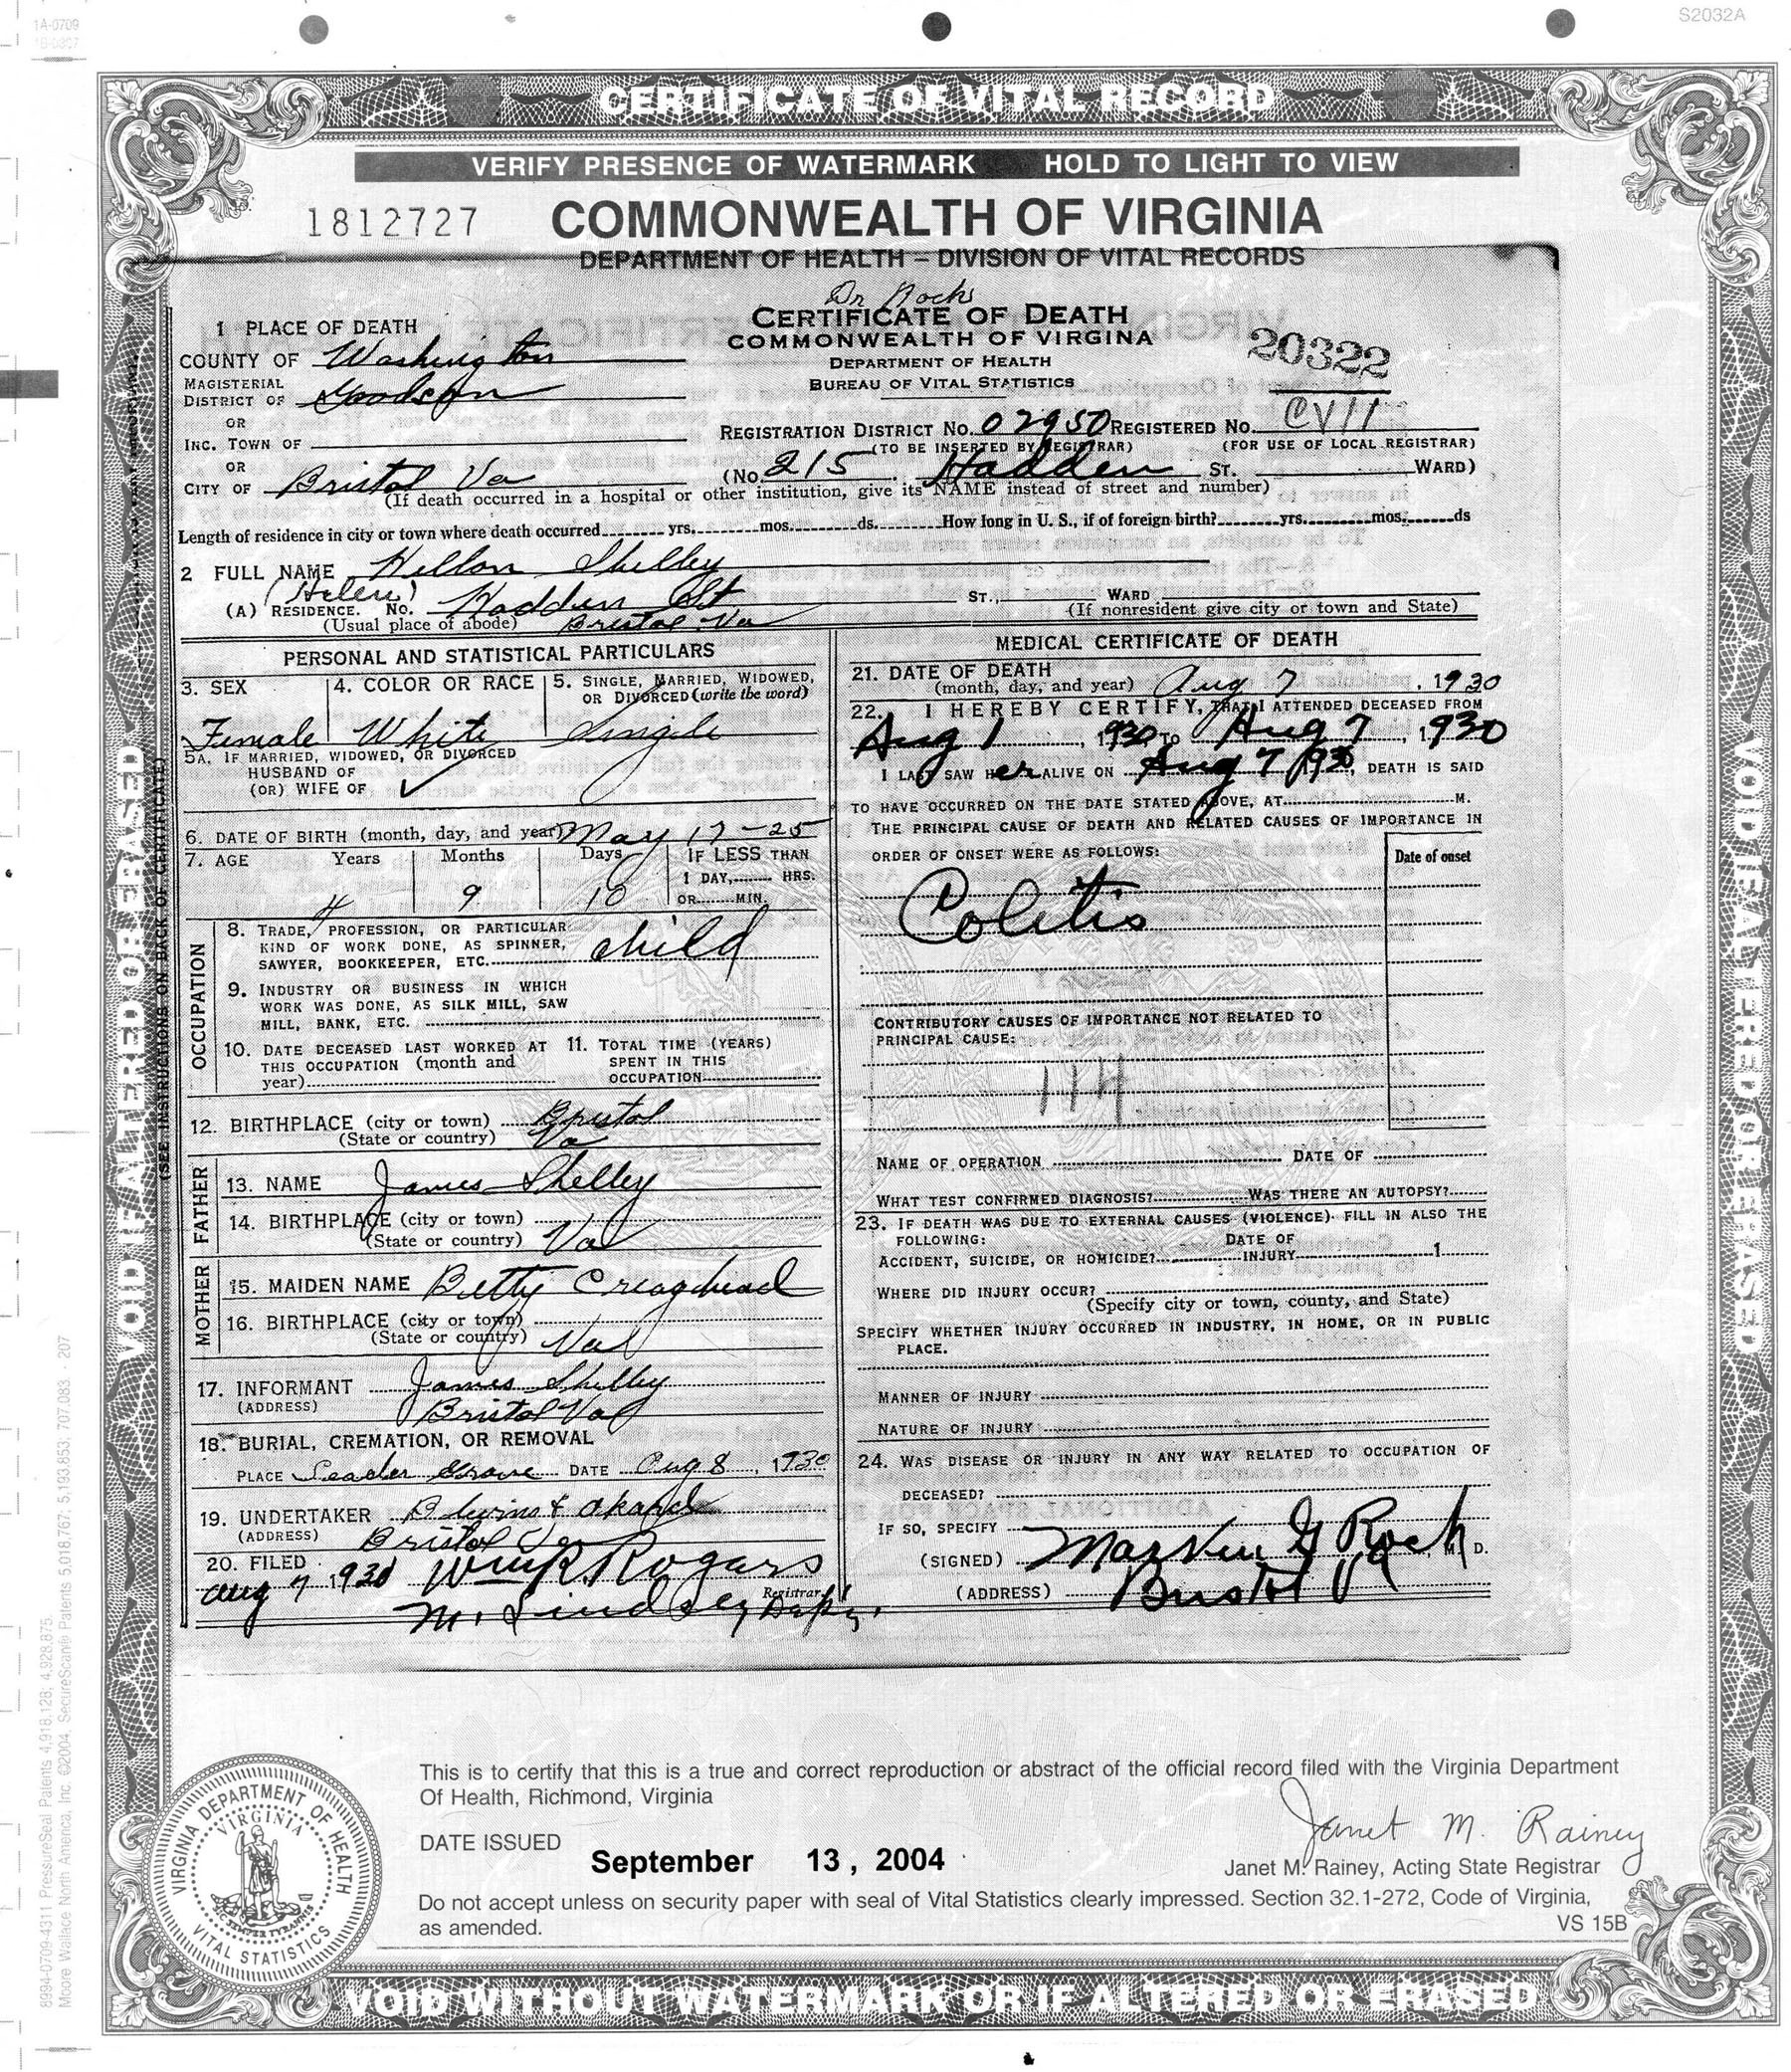 1A-0709
S2032A
CERTIFICATE OF VITAL RECORD
VERIFY PRESENCE OF WATERMARK HOLD TO LIGHT TO VIEW
1812727
COMMONWEALTH OF VIRGINIA
DEPARTMENT OF HEALTH – DIVISION OF VITAL RECORDS
Dr Roch
CERTIFICATE OF DEATH
COMMONWEALTH OF VIRGINA
DEPARTMENT OF HEALTH
BUREAU OF VITAL STATISTICS
20322
1 PLACE OF DEATH
COUNTY OF Washington
MAGISTERIAL DISTRICT OF Goodson
OR
INC. TOWN OF
OR
CITY OF Bristol Va
REGISTRATION DISTRICT No. 02950 REGISTERED No. CVII
(TO BE INSERTED BY REGISTRAR) (FOR USE OF LOCAL REGISTRAR)
(No. 215 Hadden ST. WARD)
(If death occurred in a hospital or other institution, give its NAME instead of street and number)
Length of residence in city or town where death occurred yrs. mos. ds. How long in U. S., if of foreign birth? yrs. mos. ds
2 FULL NAME Hellon Shelley
(Helen)
(A) RESIDENCE. No. Hadden St ST., WARD
(Usual place of abode) Bristol Va (If nonresident give city or town and State)
PERSONAL AND STATISTICAL PARTICULARS
3. SEX 4. COLOR OR RACE 5. SINGLE, MARRIED, WIDOWED, OR DIVORCED (write the word)
Female White Single
5A. IF MARRIED, WIDOWED, OR DIVORCED
HUSBAND OF
(OR) WIFE OF
6. DATE OF BIRTH (month, day, and year) May 17-25
7. AGE Years Months Days IF LESS THAN
1 DAY, HRS.
OR MIN.
4 9 10
OCCUPATION
8. TRADE, PROFESSION, OR PARTICULAR
KIND OF WORK DONE, AS SPINNER,
SAWYER, BOOKKEEPER, ETC. child
9. INDUSTRY OR BUSINESS IN WHICH
WORK WAS DONE, AS SILK MILL, SAW
MILL, BANK, ETC.
10. DATE DECEASED LAST WORKED AT THIS OCCUPATION (month and year)
11. TOTAL TIME (YEARS) SPENT IN THIS OCCUPATION
12. BIRTHPLACE (city or town) Bristol
(State or country) Va
FATHER
13. NAME James Shelley
14. BIRTHPLACE (city or town)
(State or country) Va
MOTHER
15. MAIDEN NAME Betty Creaghead
16. BIRTHPLACE (city or town)
(State or country) Va
17. INFORMANT James Shelley
(ADDRESS) Bristol Va
18. BURIAL, CREMATION, OR REMOVAL
PLACE Leader Grove DATE Aug 8, 1930
19. UNDERTAKER Blevins & Akard
(ADDRESS) Bristol Va
20. FILED
Aug 7 1930 Wm K. Rogars
Registrar
M. Lindsey Depy.
MEDICAL CERTIFICATE OF DEATH
21. DATE OF DEATH
(month, day, and year) Aug 7, 1930
22. I HEREBY CERTIFY, THAT I ATTENDED DECEASED FROM
Aug 1, 1930, TO Aug 7, 1930
I LAST SAW HER ALIVE ON Aug 7 1930, DEATH IS SAID
TO HAVE OCCURRED ON THE DATE STATED ABOVE, AT M.
THE PRINCIPAL CAUSE OF DEATH AND RELATED CAUSES OF IMPORTANCE IN
ORDER OF ONSET WERE AS FOLLOWS:
Date of onset
Colitis
CONTRIBUTORY CAUSES OF IMPORTANCE NOT RELATED TO
PRINCIPAL CAUSE:
114
NAME OF OPERATION DATE OF
WHAT TEST CONFIRMED DIAGNOSIS? WAS THERE AN AUTOPSY?
23. IF DEATH WAS DUE TO EXTERNAL CAUSES (VIOLENCE) FILL IN ALSO THE
FOLLOWING: DATE OF
ACCIDENT, SUICIDE, OR HOMICIDE? INJURY 1
WHERE DID INJURY OCCUR?
(Specify city or town, county, and State)
SPECIFY WHETHER INJURY OCCURRED IN INDUSTRY, IN HOME, OR IN PUBLIC
PLACE.
MANNER OF INJURY
NATURE OF INJURY
24. WAS DISEASE OR INJURY IN ANY WAY RELATED TO OCCUPATION OF
DECEASED?
IF SO, SPECIFY
(SIGNED) Marvin G Roch, M. D.
(ADDRESS) Bristol Va
(SEE INSTRUCTIONS ON BACK OF CERTIFICATE)
VOID IF ALTERED OR ERASED
VOID IF ALTERED OR ERASED
8994-0709-4311 PressureSeal Patents 4,918,128; 4,928,875; 5,018,767; 5,193,853; 707,083 - 207
Moore Wallace North America, Inc. ©2004, SecureScan® Patents
This is to certify that this is a true and correct reproduction or abstract of the official record filed with the Virginia Department
Of Health, Richmond, Virginia
DATE ISSUED
September 13, 2004
Janet M. Rainey
Janet M. Rainey, Acting State Registrar
Do not accept unless on security paper with seal of Vital Statistics clearly impressed. Section 32.1-272, Code of Virginia,
as amended.
VS 15B
VIRGINIA DEPARTMENT OF HEALTH
VIRGINIA
SIC SEMPER TYRANNIS
VITAL STATISTICS
VOID WITHOUT WATERMARK OR IF ALTERED OR ERASED